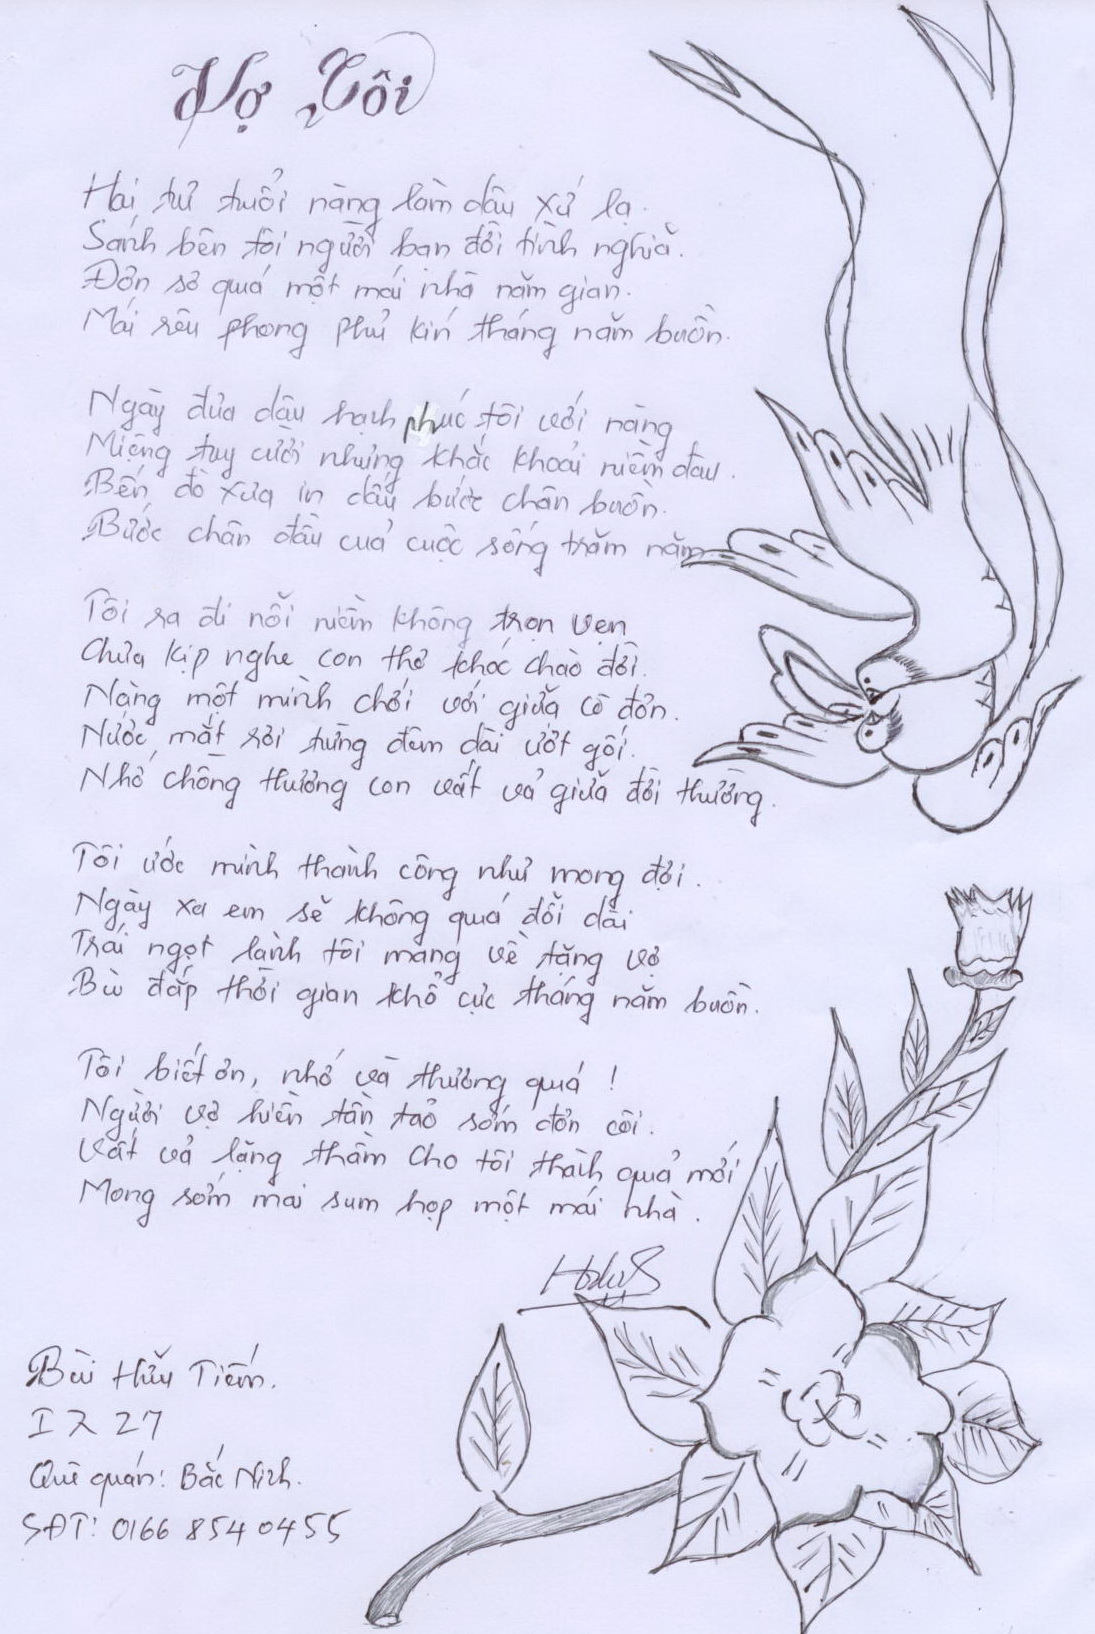 Vợ Tôi
Hai tư tuổi nàng làm dâu xứ lạ.
Sánh bên tôi người bạn đời tình nghĩa.
Đơn sơ quá một mái nhà năm gian.
Mái rêu phong phủ kín tháng năm buồn.
Ngày đưa dâu hạnh phúc tôi với nàng
Miệng tuy cười nhưng khắc khoải niềm đau.
Bến đò xưa in dấu bước chân buồn.
Bước chân đầu cuả cuộc sống trăm năm
Tôi ra đi nỗi niềm không trọn vẹn
Chưa kịp nghe con thơ khóc chào đời.
Nàng một mình chới với giữa cô đơn.
Nước mắt rơi từng đêm dài ướt gối.
Nhớ chồng thương con vất vả giữa đời thường.
Tôi ước mình thành công như mong đợi.
Ngày xa em sẽ không quá đỗi dài
Trái ngọt lành tôi mang về tặng vợ
Bù đắp thời gian khổ cực tháng năm buồn.
Tôi biết ơn, nhớ và thương quá !
Người vợ hiền tần tảo sớm đơn côi.
Vất vả lặng thầm cho tôi thành quả mới
Mong sớm mai sum họp một mái nhà.
Bùi Hữu Tiến.
Quê quán: Bắc Ninh.
SĐT: 0166 854 0455